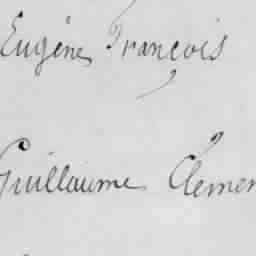 Eugène François
Guillaume Clemen